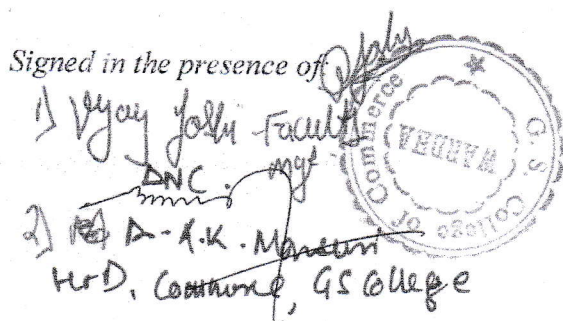 Signed in the presence of
1) Vijay Joshi Faculty
Mgt
DNC.
2) A. K. Mansuri
HoD, Commerce, GS College
G. S. College of Commerce
WARDHA